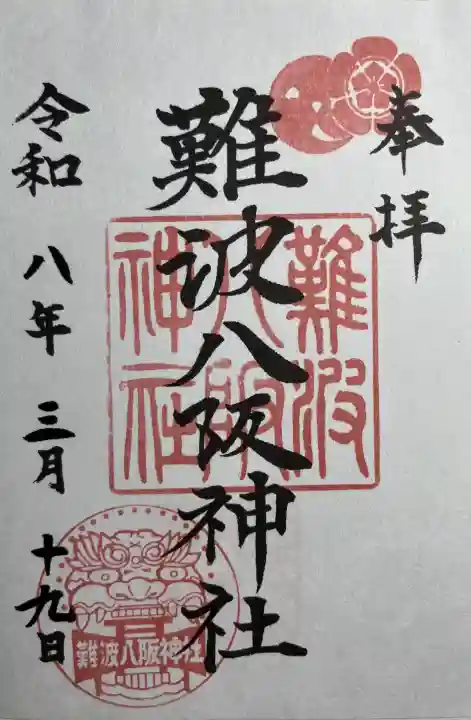 奉拝
難波八阪神社
難波
八阪
神社
令和 八年 三月 十九日
難波八阪神社